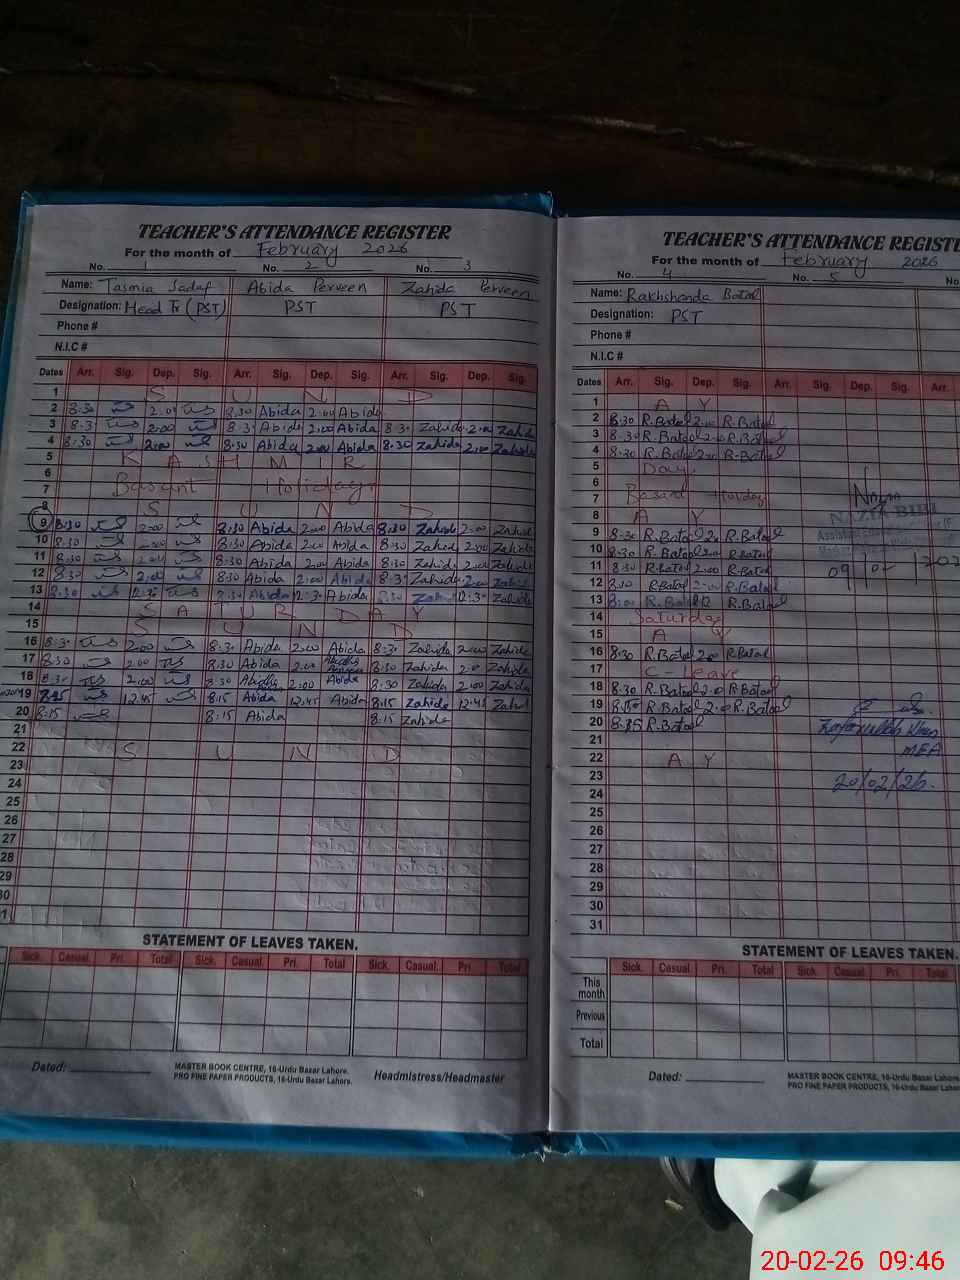 TEACHER'S ATTENDANCE REGISTER
For the month of February 2026
No. 1 No. 2 No. 3
Name: Tasmia Sadaf Abida Perveen Zahida Perveen
Designation: Head Tr (PST) PST PST
Phone #
N.I.C #
Dates Arr. Sig. Dep. Sig. Arr. Sig. Dep. Sig. Arr. Sig. Dep. Sig.
1 S U N D
2 8:30 2:00 8:30 Abida 2:00 Abida
3 8:3 2:00 8:3 Abida 2:00 Abida 8:3 Zahida 2:00 Zahida
4 8:30 2:00 8:30 Abida 2:00 Abida 8:30 Zahida 2:00 Zahida
5 KASHMIR
6
7 Basant Holiday
8 S U N D
9 8:30 2:00 8:30 Abida 2:00 Abida 8:30 Zahida 2:00 Zahida
10 8:30 2:00 8:30 Abida 2:00 Abida 8:30 Zahida 2:00 Zahida
11 8:30 2:00 8:30 Abida 2:00 Abida 8:30 Zahida 2:00 Zahida
12 8:30 2:00 8:30 Abida 2:00 Abida 8:3 Zahida 2:00 Zahida
13 8:30 12:30 8:30 Abida 12:30 Abida 8:30 Zahida 12:30 Zahida
14 SATURDAY
15 S U N D
16 8:30 2:00 8:30 Abida 2:00 Abida 8:30 Zahida 2:00 Zahida
17 8:30 2:00 8:30 Abida 2:00 8:30 Zahida 2:00 Zahida
18 8:30 2:00 8:30 2:00 Abida 8:30 Zahida 2:00 Zahida
19 12:45 8:15 Abida 12:45 Abida 8:15 Zahida 12:45 Zahida
20 8:15 8:15 Abida 8:15 Zahida
21
22 S U N D
23
24
25
26
27
28
29
30
STATEMENT OF LEAVES TAKEN.
Sick. Casual. Pri. Total Sick. Casual. Pri. Total Sick. Casual. Pri. Total
Dated:
MASTER BOOK CENTRE, 16-Urdu Bazar Lahore.
PRO FINE PAPER PRODUCTS, 16-Urdu Bazar Lahore.
Headmistress/Headmaster
TEACHER'S ATTENDANCE REGISTE
For the month of February 2026
No. 4 No. 5 No
Name: Rakhshanda Batool
Designation: PST
Phone #
N.I.C #
Dates Arr. Sig. Dep. Sig. Arr. Sig. Dep. Sig. Arr.
1 A Y
2 8:30 R.Batool 2:00 R.Batool
3 8:30 R.Batool 2:00 R.Batool
4 8:30 R.Batool 2:00 R.Batool
5 Day
6
7 Basant Holiday
8 A Y
9 8:30 R.Batool 2:00 R.Batool
10 8:30 R.Batool 2:00 R.Batool
11 8:30 R.Batool 2:00 R.Batool
12 R.Batool 2:00 R.Batool
13 R.Batool 12 R.Batool
14 Saturday
15 A Y
16 8:30 R.Batool 2:00 R.Batool
17 C-leave
18 8:30 R.Batool 2:0 R.Batool
19 R.Batool R.Batool
20 8:15 R.Batool
21
22 A Y
23
24
25
26
27
28
29
30
31
NAZIA BIBI
09/02/202
MEA
20/02/26.
STATEMENT OF LEAVES TAKEN.
Sick. Casual. Pri. Total Sick. Casual. Pri. Total
This month
Previous
Total
Dated:
MASTER BOOK CENTRE, 16-Urdu Bazar Lahore.
PRO FINE PAPER PRODUCTS, 16-Urdu Bazar Lahore
20-02-26 09:46